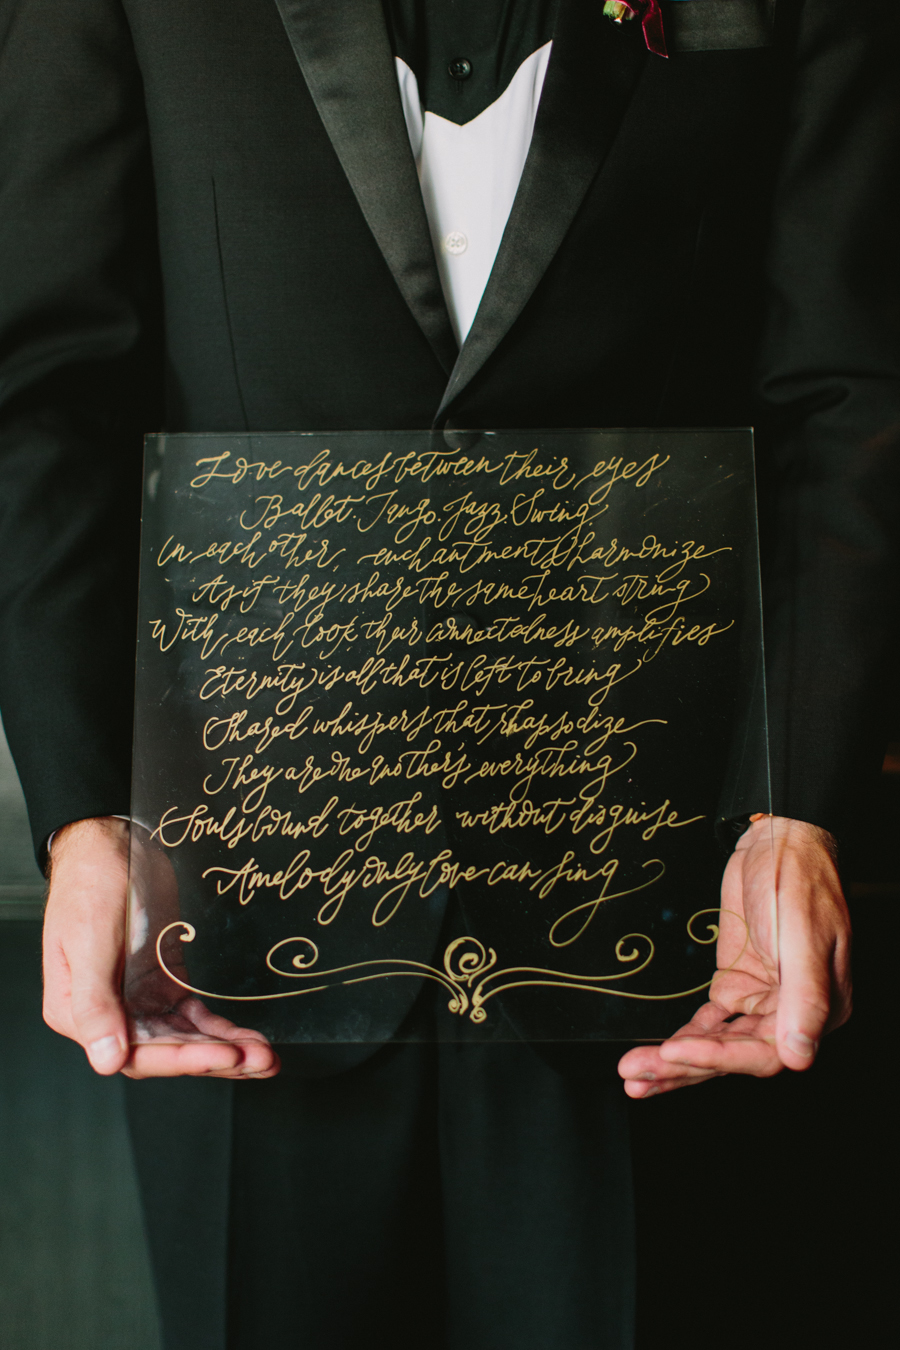 Love dances between their eyes
Ballet. Tango. Jazz. Swing.
In each other, enchantments harmonize
As if they share the same heart string
With each look, their connectedness amplifies
Eternity is all that is left to bring
Shared whispers that rhapsodize
They are one another's everything
Souls bound together without disguise
A melody only love can sing